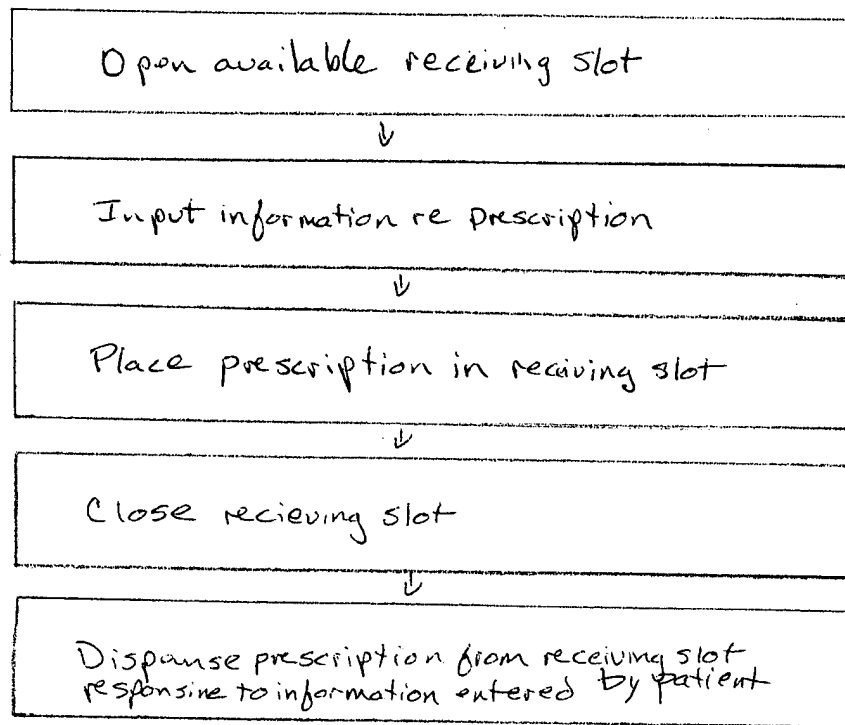 Open available receiving slot
Input information re prescription
Place prescription in receiving slot
Close recieving slot
Dispanse prescription from receiving slot
responsine to information entered by patient